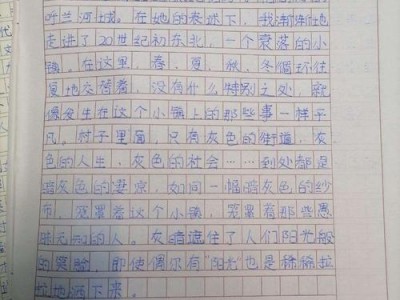 呼兰河城。在她的表述下，我渐渐地
走进了20世纪初东北，一个衰落的小
镇。在这里，春、夏、秋、冬循环往
复地交替着，没有什么特别之处，就
像发生在这个小镇上的那些事一样平
凡。村子里面，只有灰色的街道，灰
色的人生，灰色的社会……到处都是
暗灰色的凄凉，如同一幅暗灰色的纱
布，笼罩着这个小镇，笼罩着那些愚
昧无知的人。灰暗遮住了人们阳光般
的笑脸，即使偶尔有“阳光”也是稀稀拉
拉地洒下来。